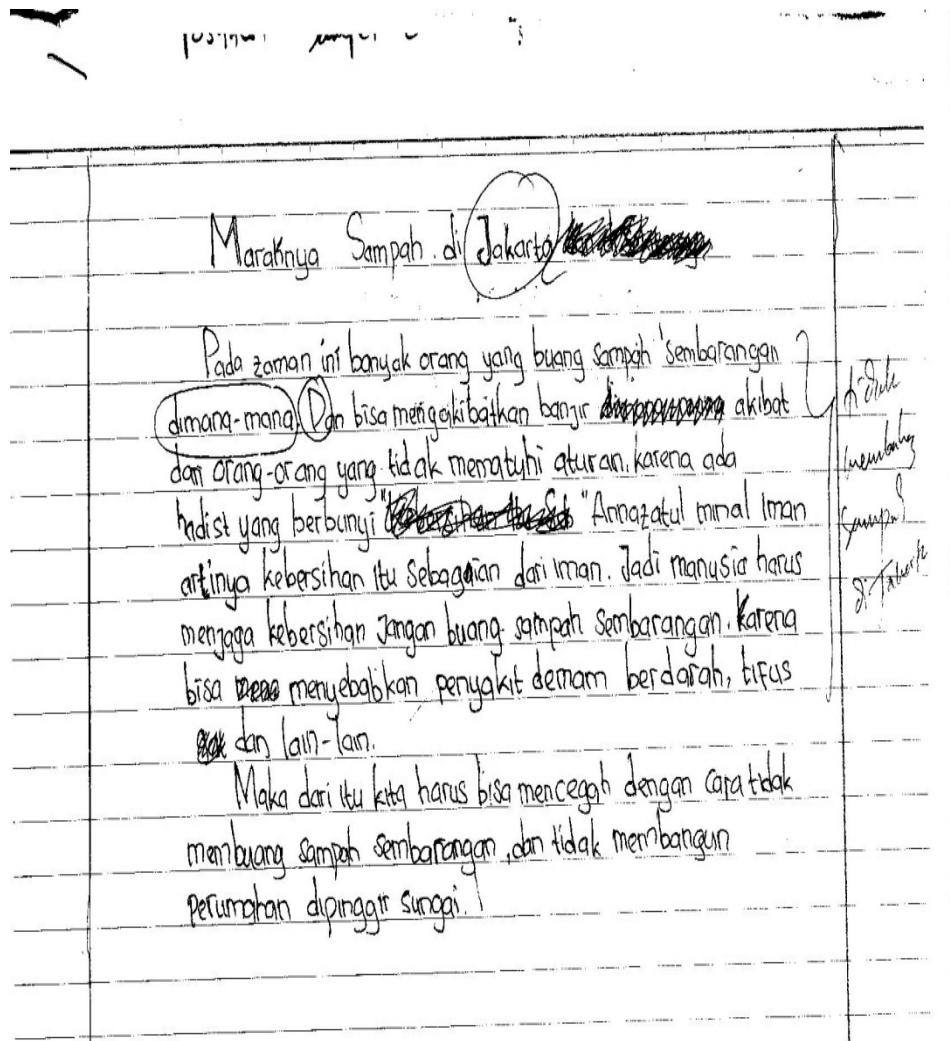 Maraknya Sampah di Jakarta
Pada zaman ini banyak orang yang buang sampah sembarangan
dimana-mana. Dan bisa mengakibatkan banjir akibat
dari orang-orang yang tidak mematuhi aturan. karena ada
hadist yang berbunyi "Annazatul minal Iman
artinya kebersihan itu Sebagaian dari iman. Jadi manusia harus
menjaga kebersihan Jangan buang sampah sembarangan. Karena
bisa menyebabkan penyakit demam berdarah, tifus
dan lain-lain.
Maka dari itu kita harus bisa mencegah dengan cara tidak
membuang sampah sembarangan, dan tidak membangun
perumahan dipinggir sungai.
membuang
sampah
di